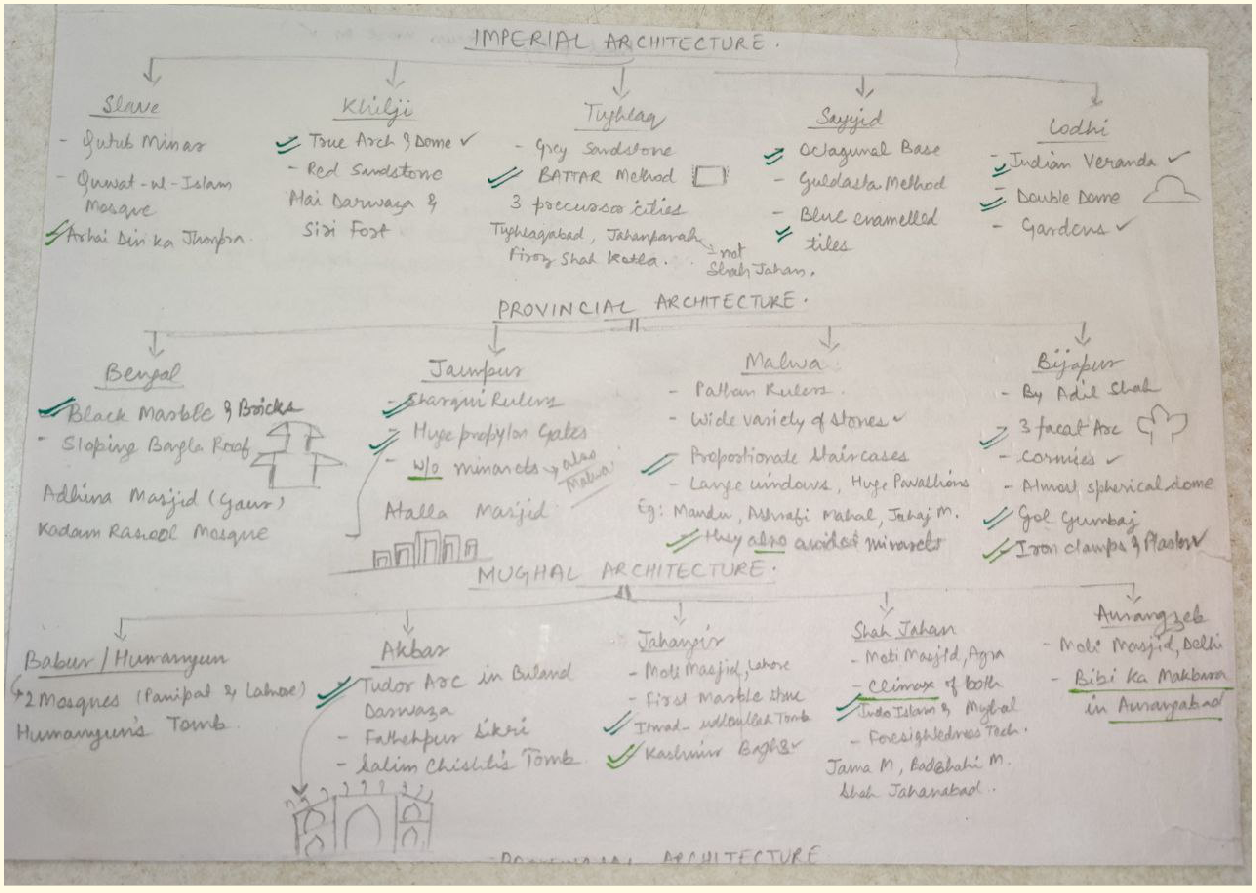 IMPERIAL ARCHITECTURE.
Slave
- Qutub Minar
- Quwat-ul-Islam
Mosque
Arhai Din ka Jhonpra.
Khilji
- True Arch & Dome
- Red Sandstone
Alai Darwaza &
Siri Fort
Tughlaq
- Grey Sandstone
- BATTAR Method
3 precursor cities
Tughlaqabad, Jahanpanah
Firoz Shah Kotla.
- not
Shah Jahan.
Sayyid
- Octagunal Base
- Guldasta Method
- Blue enamelled
tiles
Lodhi
- Indian Veranda
- Double Dome
- Gardens
PROVINCIAL ARCHITECTURE.
Bengal
- Black Marble & Bricks
- Sloping Bangla Roof
Adhina Masjid (Gaur)
Kadam Rasool Mosque
Jaunpur
- Sharqui Rulers
- Huge propylon Gates
- w/o minarets
also
Malwa
Atalla Masjid
Malwa
- Pathan Rulers.
- Wide variety of stones
- Proportionate Staircases
- Large windows, Huge Pavallions
Eg: Mandu, Ashrafi Mahal, Jahaj M.
- they also avoided minarets
Bijapur
- By Adil Shah
- 3 facat Arc
- Cornies
- Almost spherical dome
- Gol Gumbaj
- Iron clamps & Plaster
MUGHAL ARCHITECTURE.
Babur/Humanyun
2 Mosques (Panipat & Lahore)
Humanyun's Tomb.
Akbar
- Tudor Arc in Buland
Darwaza
- Fathehpur Sikri
- Salim Chishti's Tomb.
Jahangir
- Moti Masjid, Lahore
- First Marble struc
- Imad-uddaullah Tomb
- Kashmir Baghs
Shah Jahan
- Moti Masjid, Agra
- Climax of both
Indo Islam & Mughal
- Foresightedness Tech.
Jama M, Badshahi M.
Shah Jahanabad.
Aurangzeb
- Moti Masjid, Delhi
- Bibi ka Makbara
in Aurangabad
ARCHITECTURE